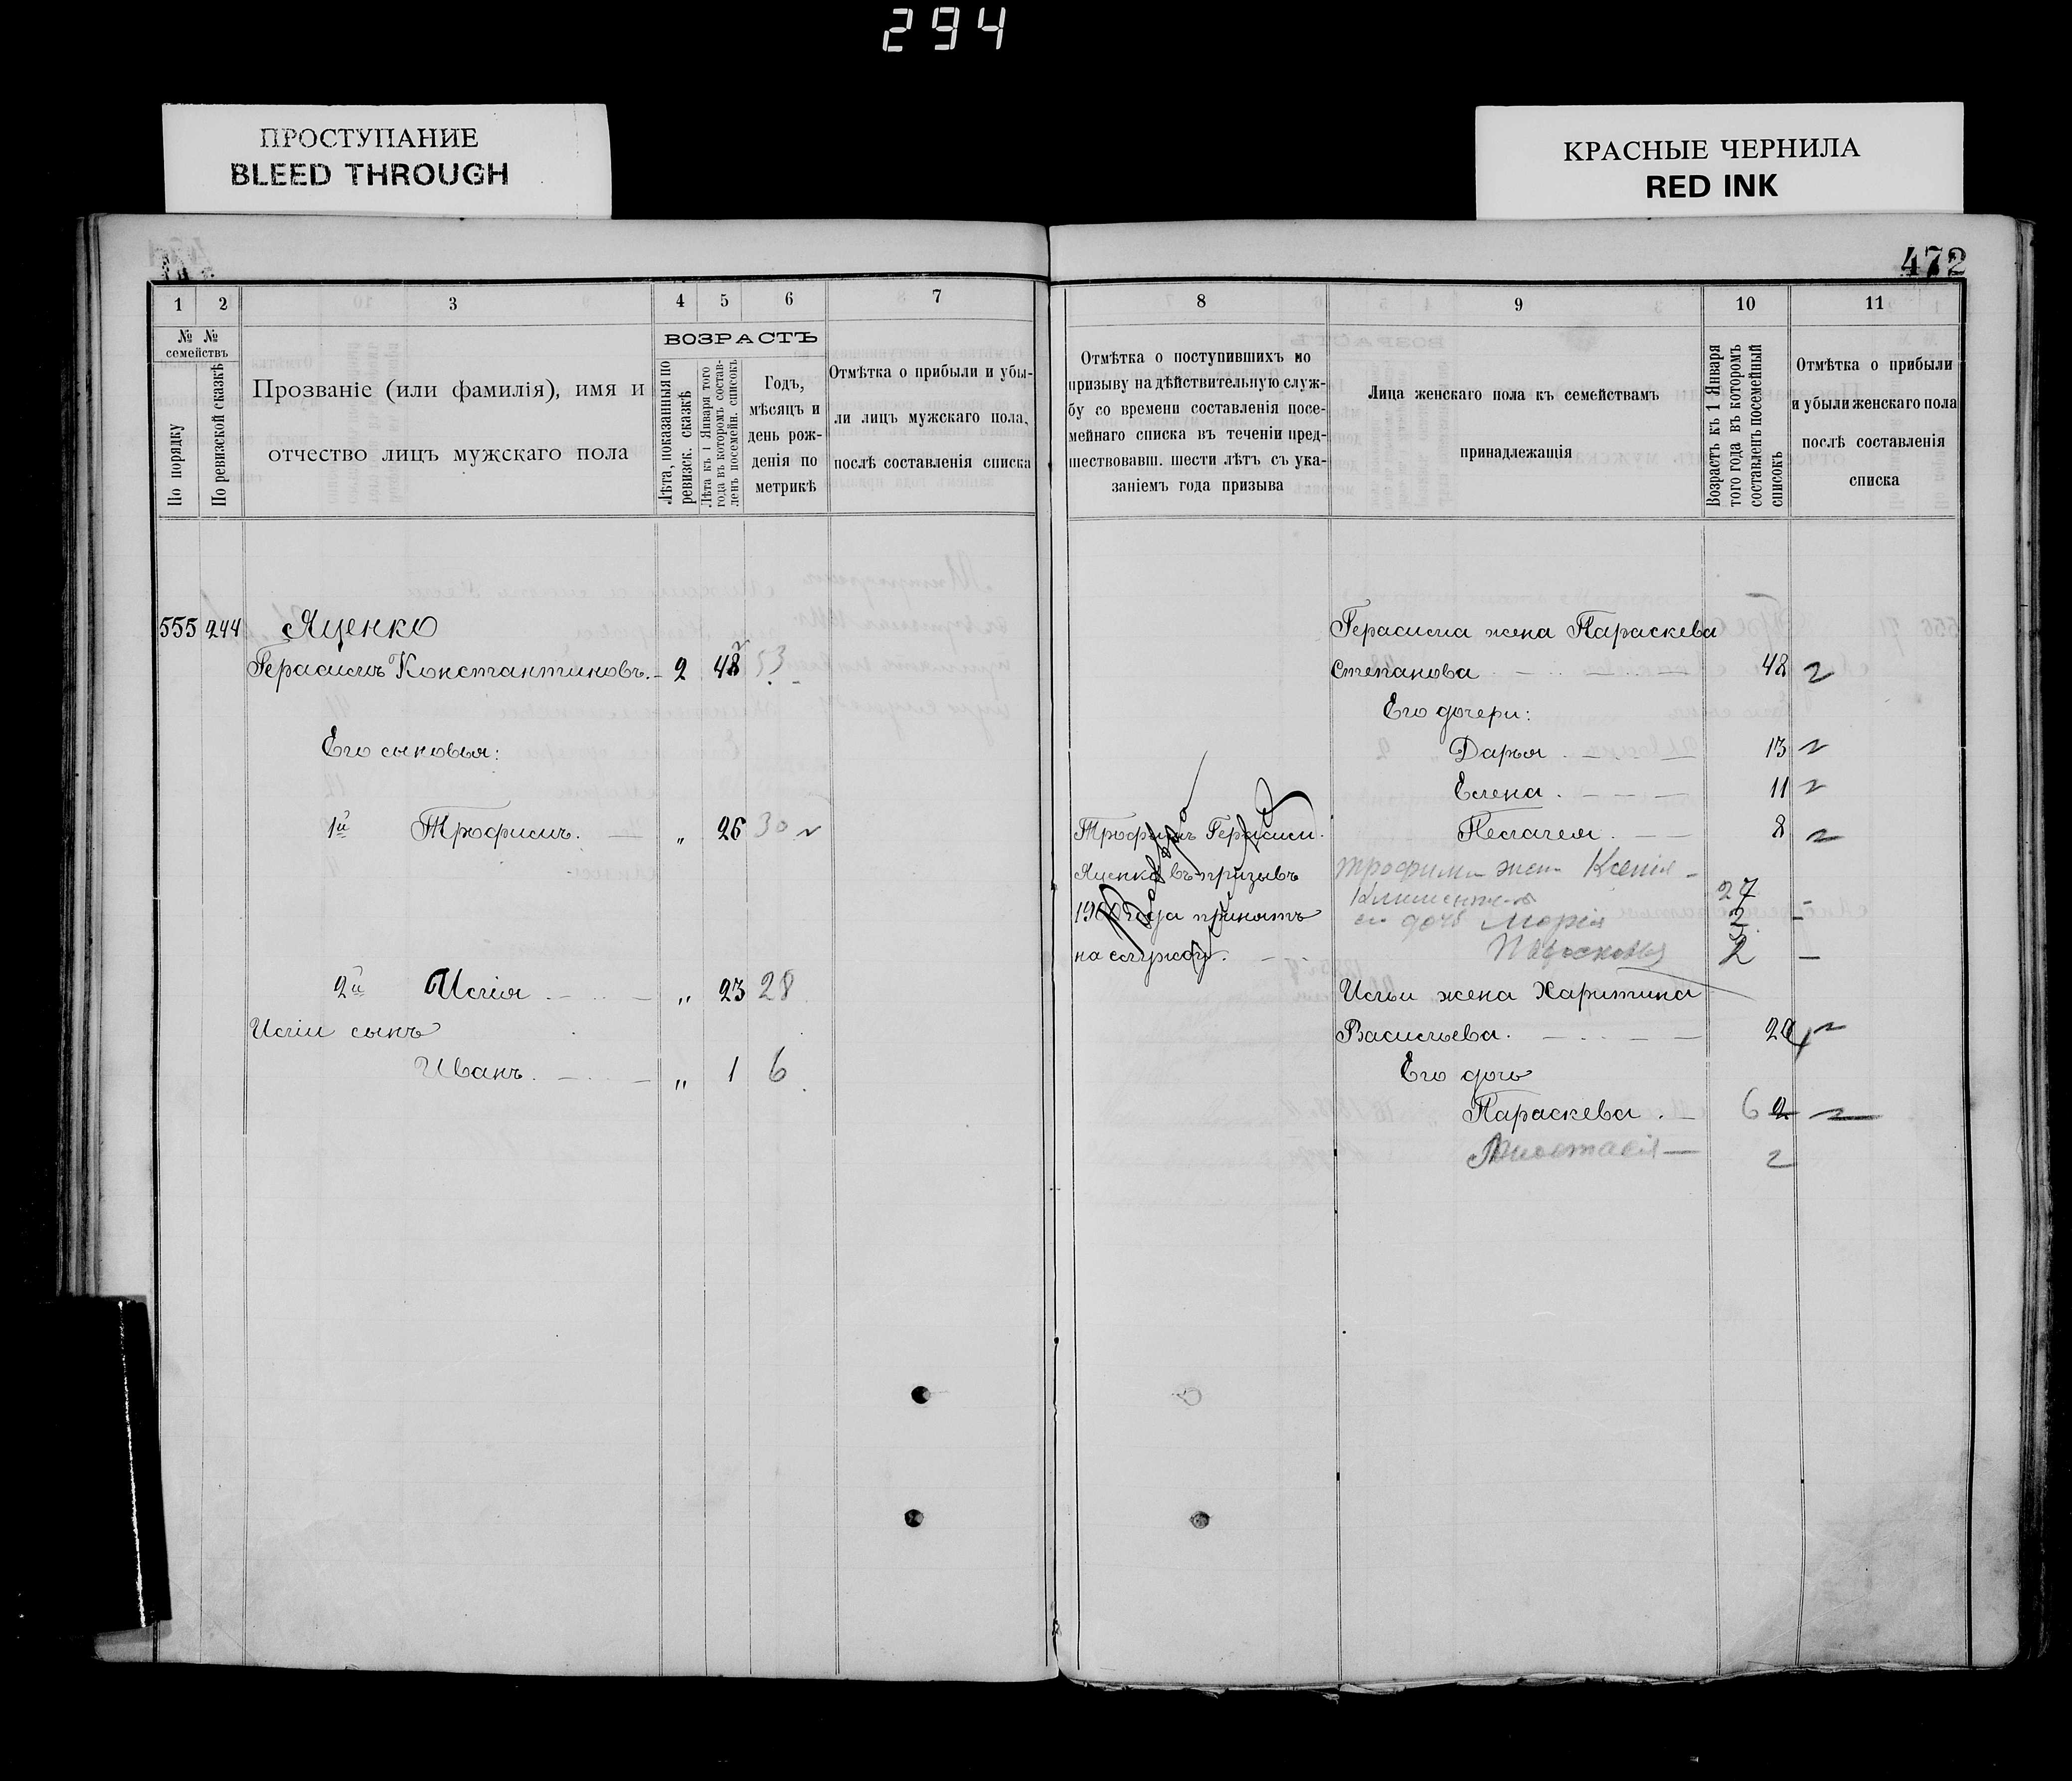 294
ПРОСТУПАНИЕ
BLEED THROUGH
КРАСНЫЕ ЧЕРНИЛА
RED INK
472
1 2 3 4 5 6 7
№ № семействъ
По порядку
По ревизской сказкѣ
Прозваніе (или фамилія), имя и
отчество лицъ мужскаго пола
ВОЗРАСТЪ
Лѣта, показанныя по
ревизск. сказкѣ
Лѣта къ 1 Января того
года въ которомъ состав-
ленъ посемейн. списокъ
Годъ,
мѣсяцъ и
день рож-
денія по
метрикѣ
Отмѣтка о прибыли и убы-
ли лицъ мужскаго пола,
послѣ составленія списка
555 244 Яценко
Герасимъ Константиновъ. 2 48 53
Его сыновья:
1й Трофимъ. „ 26 30
2й Илія „ 23 28
Иліи сынъ
Иванъ. „ 1 6
8 9 10 11
Отмѣтка о поступившихъ по
призыву на дѣйствительную служ-
бу со времени составленія посе-
мейнаго списка въ теченіи пред-
шествовавш. шести лѣтъ съ ука-
заніемъ года призыва
Лица женскаго пола къ семействамъ
принадлежащія
Возрастъ къ 1 Января
того года въ которомъ
составленъ посемейный
списокъ
Отмѣтка о прибыли
и убыли женскаго пола
послѣ составленія
списка
Герасима жена Параскева
Степанова 48
Его дочери:
Дарья 13
Елена 11
Пелагея 8
Трофимъ Герасим.
Яценко въ призывъ
года принятъ
на службу.
Трофима жен Ксенія 27
дочь Марія
Парасковья 2
Ильи жена Харитина
Васильева.
Его дочь
Параскева 6 2
Анастасія 2